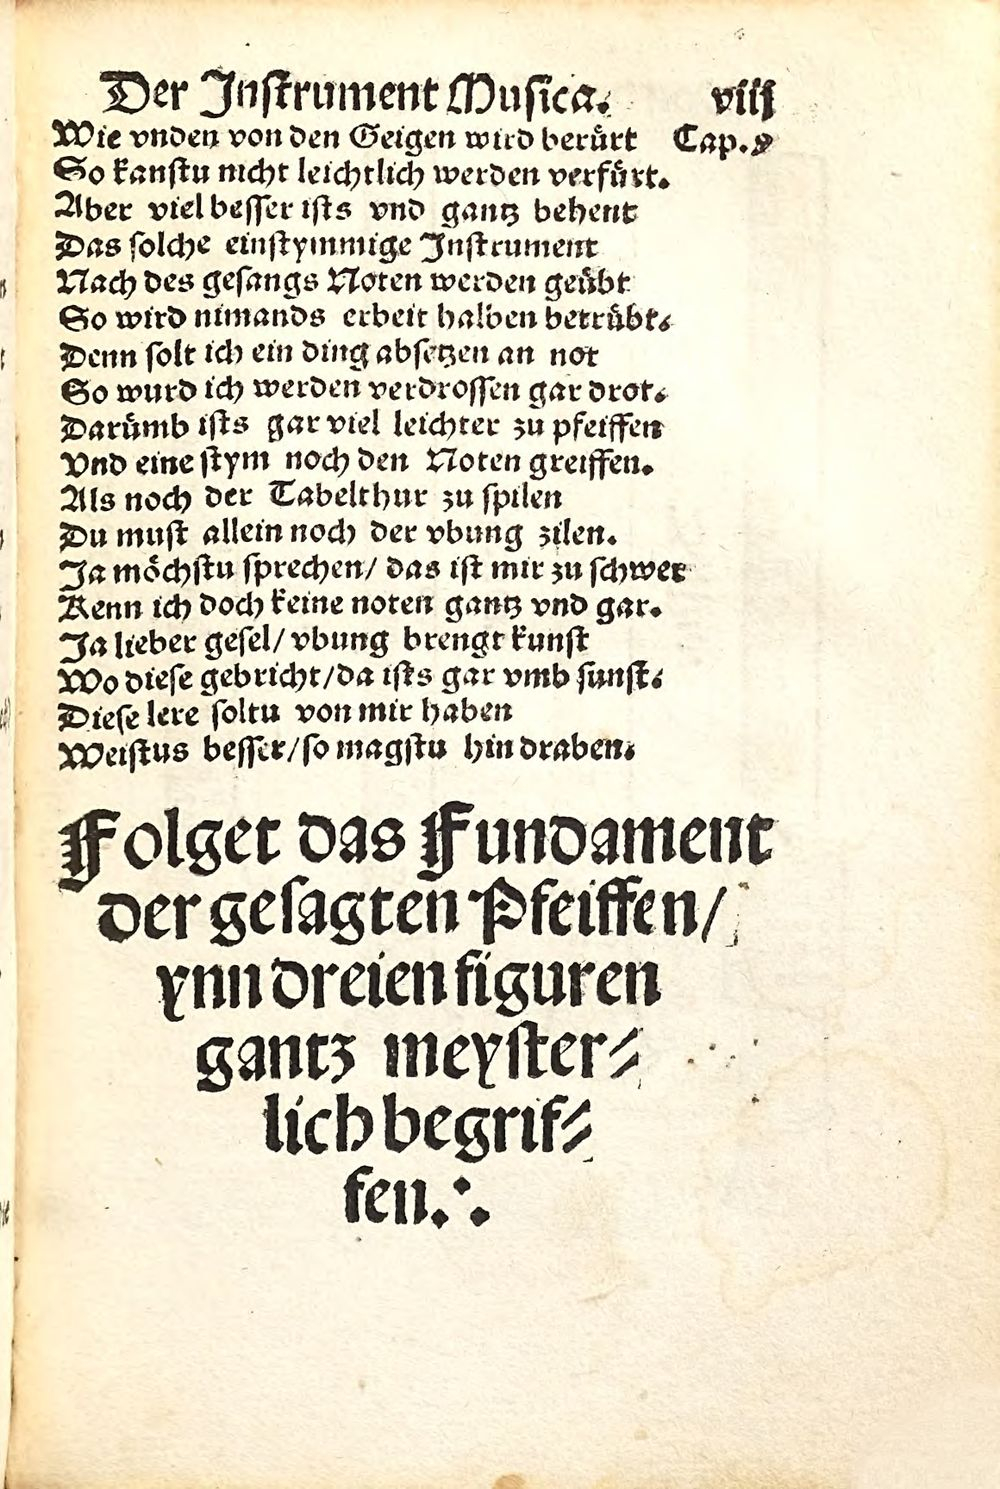 Der Inſtrument Muſica. viij
Wie vnden von den Geigen wird berürt Cap.
So kanſtu nicht leichtlich werden verfürt.
Aber viel beſſer iſts vnd gantz behent
Das ſolche einſtymmige Inſtrument
Nach des geſangs Noten werden geübt
So wird nimands erbeit halben betrübt.
Denn ſolt ich ein ding abſetzen an not
So wurd ich werden verdroſſen gar drot.
Darümb iſts gar viel leichter zu pfeiffen
Vnd eine ſtym noch den Noten greiffen.
Als noch der Tabelthur zu ſpilen
Du muſt allein noch der vbung zilen.
Ja möchſtu ſprechen/ das iſt mir zu ſchwer
Kenn ich doch keine noten gantz vnd gar.
Ja lieber geſel/ vbung brengt kunſt
Wo dieſe gebricht/da iſts gar vmb ſunſt.
Dieſe lere ſoltu von mir haben
Weiſtus beſſer/ſo magſtu hin draben.
Folget das Fundament
der geſagten Pfeiffen/
ynn dreien figuren
gantz meyſter⸗
lich begrif⸗
fen.